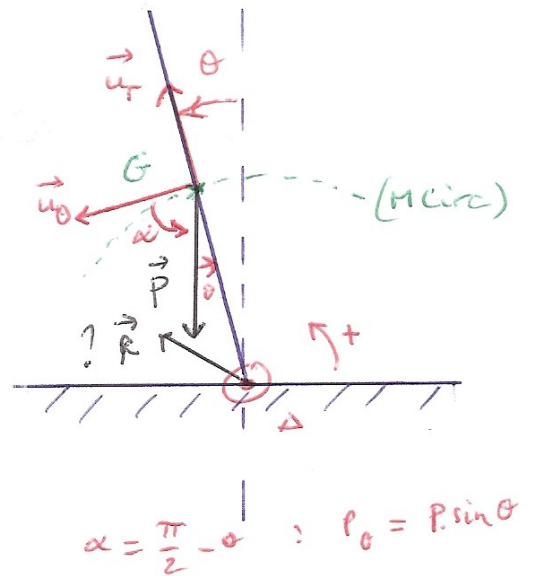 θ
u⃗r
G
u⃗θ
(M Circ)
α
P⃗
θ
? R⃗
+
Δ
α = π/2 - θ : Pθ = P.sinθ